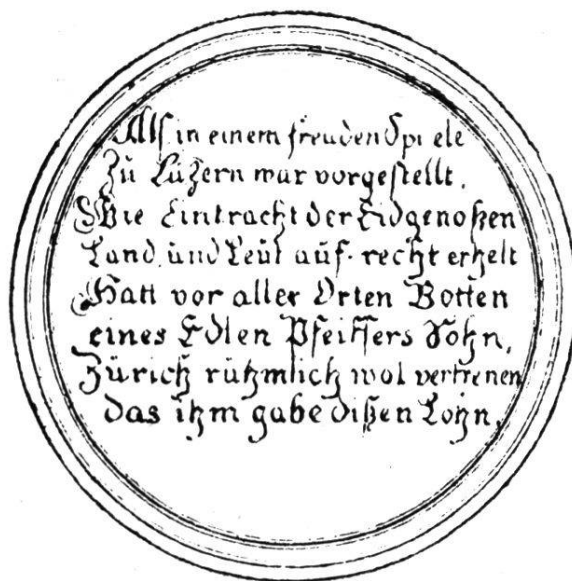 Als in einem freuden Spiele
Zu Luzern war vorgestellt.
Wie Eintracht der Eidgenoßen
Land und Leut auf-recht erhelt
Hatt vor aller Orten Botten
eines Edlen Pfeiffers Sohn,
Zürich rühmlich wol vertretten
das ihm gabe dißen Lohn.